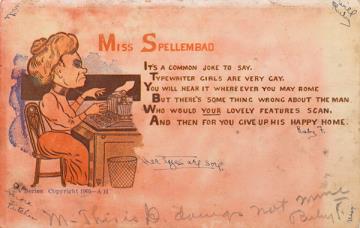 Miss Spellembad
It's a common joke to say.
Typewriter girls are very gay.
You will hear it where ever you may rome
But there's some thing wrong about the man
Who would your lovely features scan.
And then for you give up his happy home.
Ruby F.
her eyes are sore
Series Copyright 1905—A H
M— This is D. doings not mine
Ruby F.